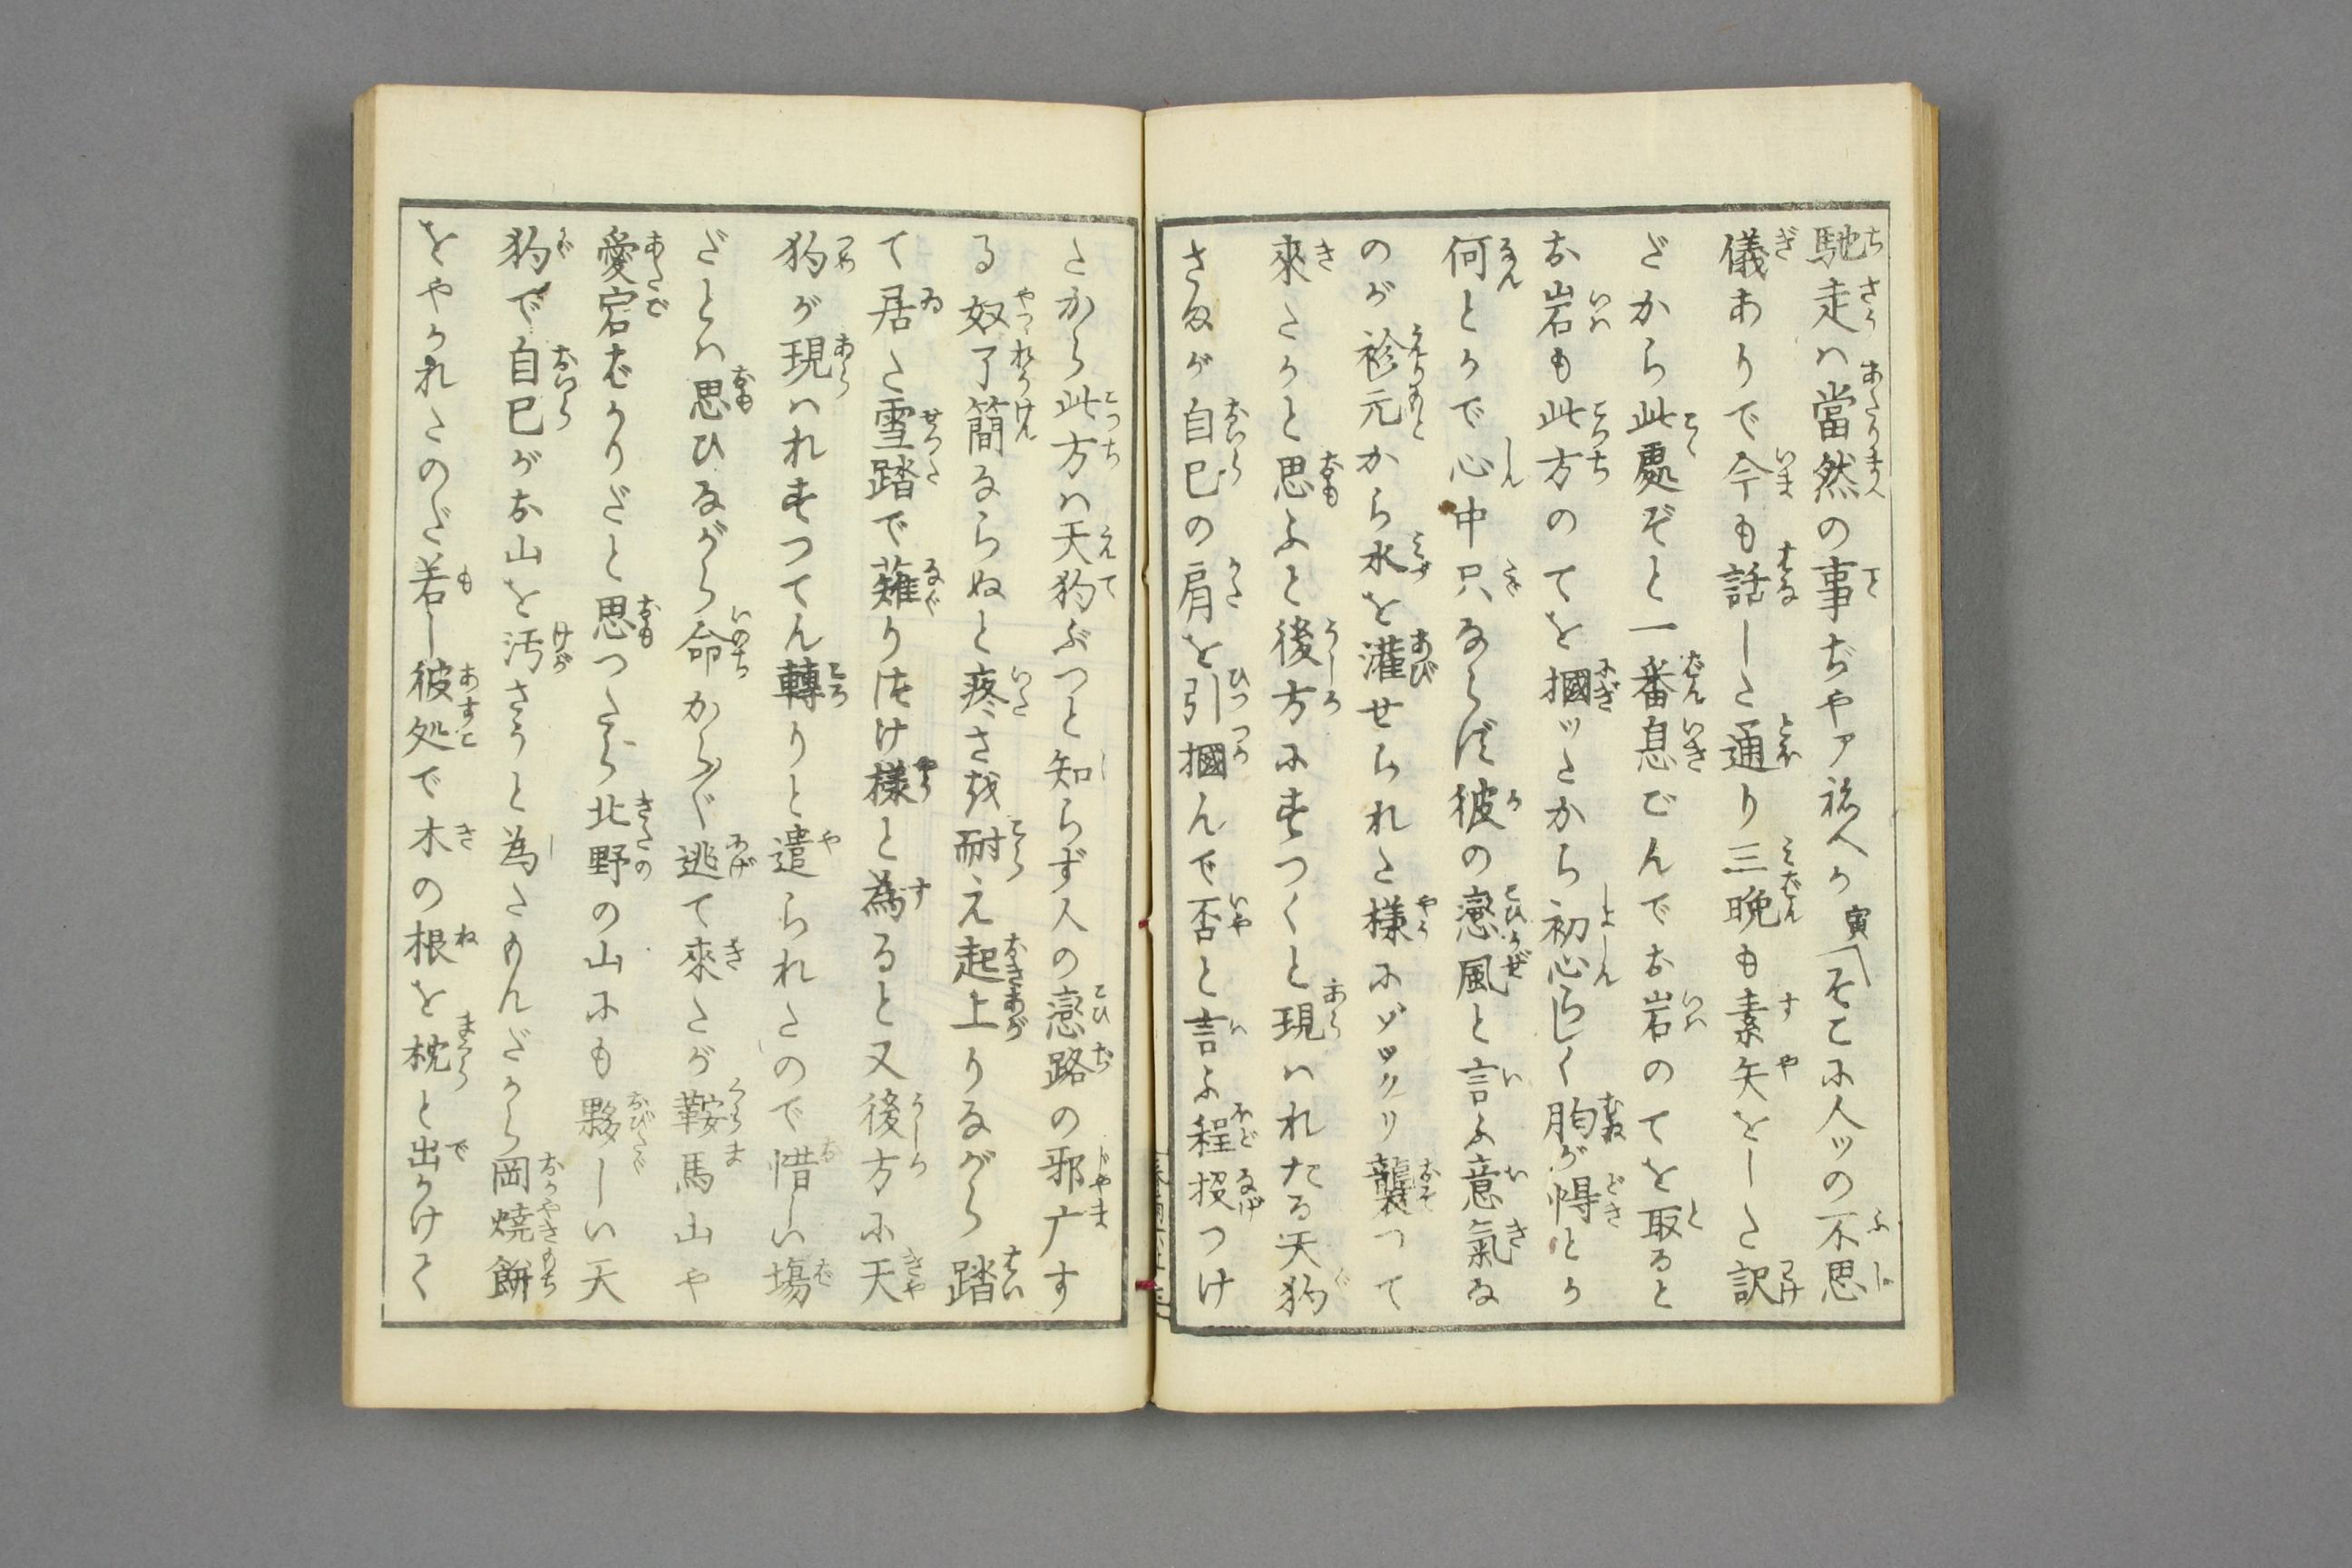 馳走ハ當然の事ぢやア有人か寅「そこに人ツの不思
儀ありで今も話した通り三晩も素矢をした訳
だから此處ぞと一番息ごんでお岩のてを取ると
お岩も此方のてを摑ツたから初心らしく胸が悸とか
何とかで心中只ならず彼の戀風と言ふ意氣な
のが衿元から水を灌せられた様にゾックリ襲つて
來たかと思ふと後方にすつくと現ハれたる天狗
さまが自己の肩を引摑んで否と言ふ程投つけ
たから此方ハ天狗ぶつと知らず人の戀路の邪广す
る奴了簡ならぬと疼さを耐え起上りながら踏
て居た雪踏で薙りつけ様と為ると又後方に天
狗が現ハれすつてん轉りと遣られたので惜しい場
だとハ思ひながら命から〴〵逃て來たが鞍馬山や
愛宕ばかりだと思つたら北野の山にも夥しい天
狗で自己がお山を汚さうと為たもんだから岡焼餅
をやかれたのだ若し彼処で木の根を枕と出かけて